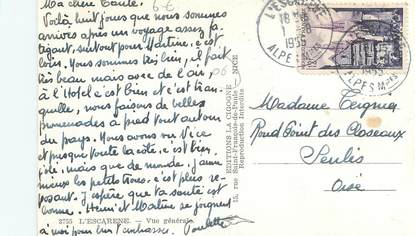 Ma chère Tante. 6 €
Voilà huit jours que nous sommes
arrivés après un voyage assez fa-
tigant, surtout pour Martine, c'est
loin. Nous sommes très bien, il fait
très beau mais avec de l'air,
à l'Hôtel c'est bien et c'est tran-
quille, nous faisons de belles
promenades à pied tout autour
du pays. Nous avons vu Nice
et presque toute la côte, c'est bien
joli, mais que de monde, j'aime
mieux les petits trous, c'est plus re-
posant. J'espère que ta santé est
bonne. Henri et Martine se joignent
à moi pour bien t'embrasser. Paulette
2755 L'ESCARENE. - Vue générale
EDITIONS LA CIGOGNE
15, rue Saint-François-de-Paule - NICE
Reproduction Interdite
L'ESCARENE
18
1955
ALPES Mmes
Madame
Rond Point des Closeaux
Senlis
Oise